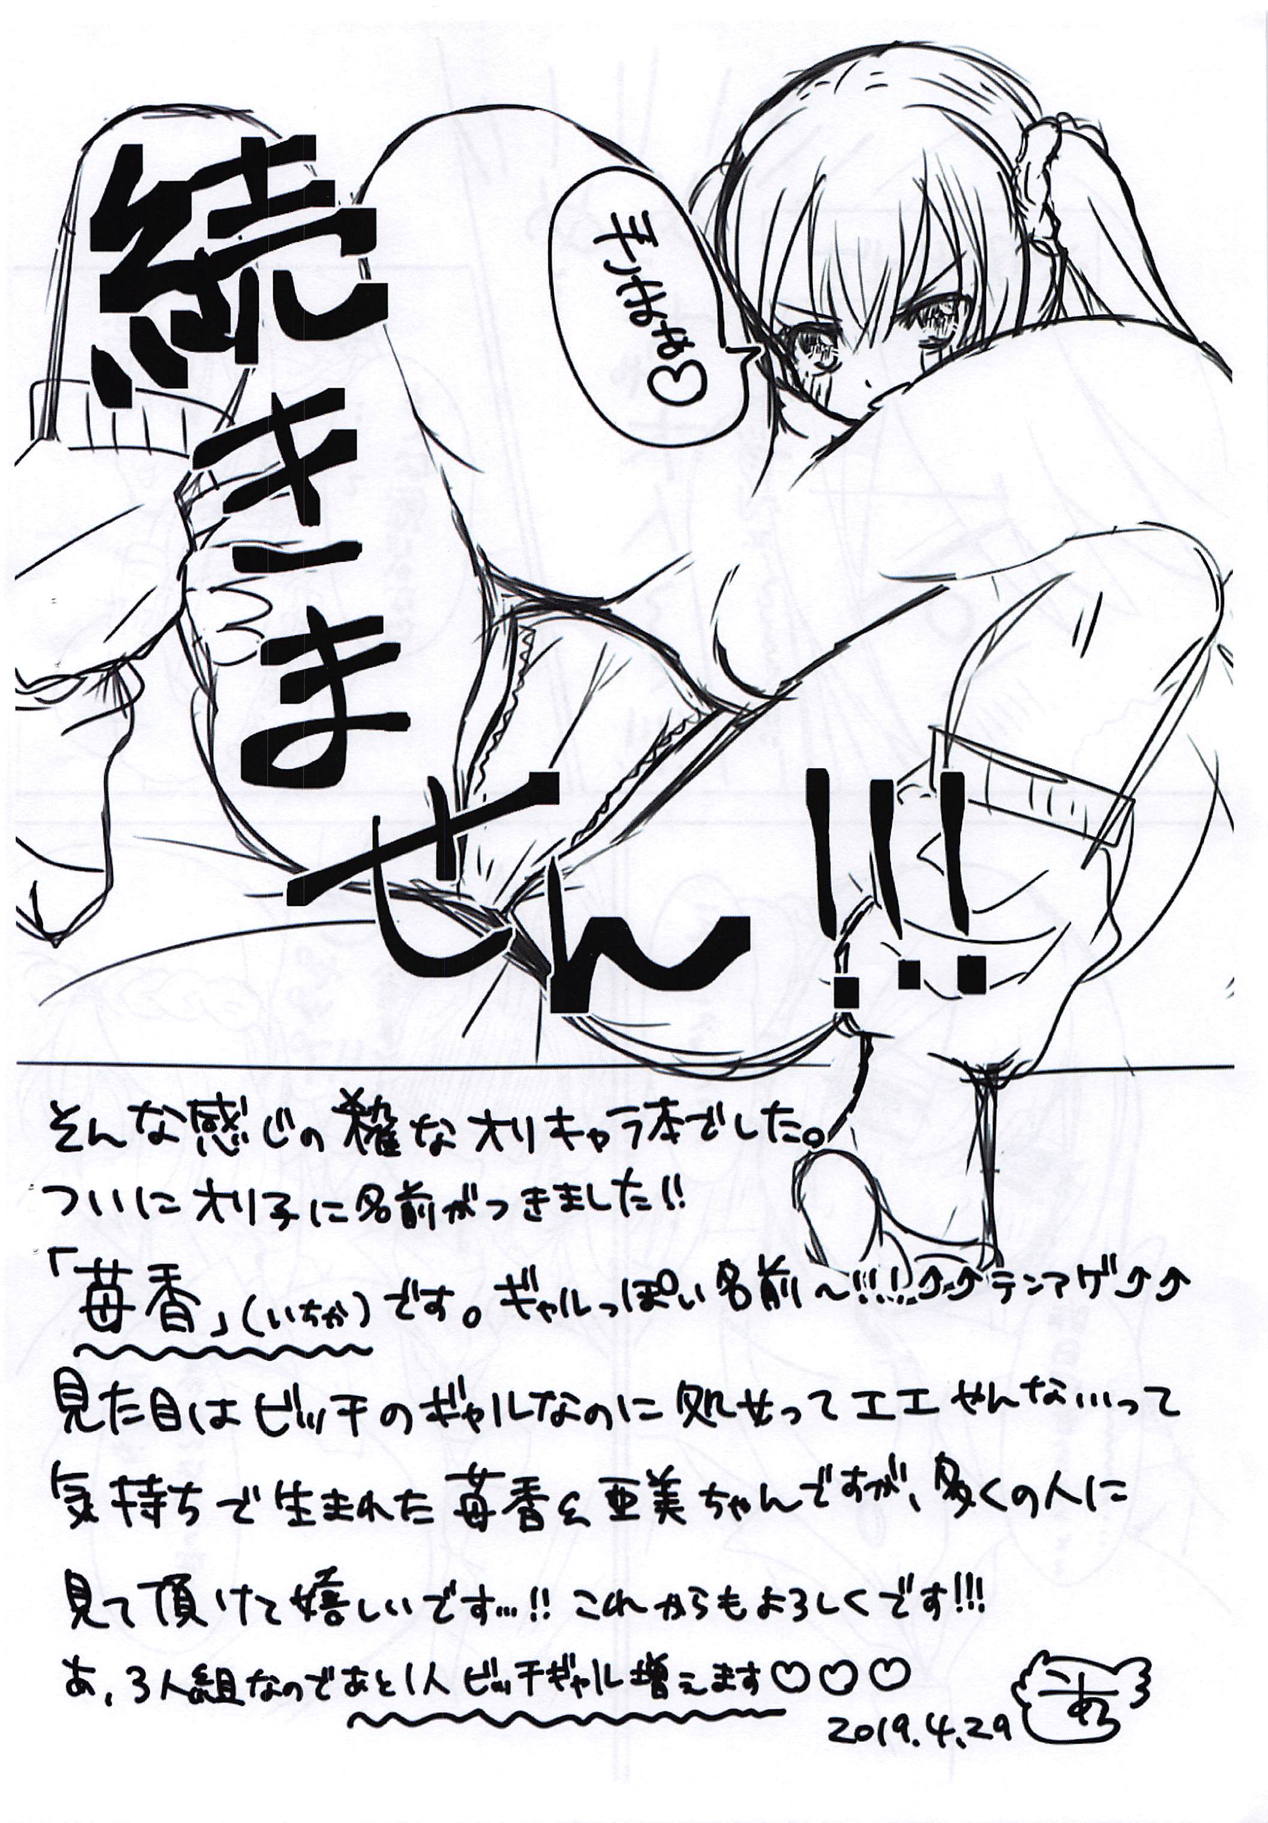 ざまぁ♡
続きません!!!
そんな感じの雑なオリキャラ本でした。
ついにオリ子に名前がつきました!!
「苺香」(いちか)です。ギャルっぽい名前〜!!!⤴⤴テンアゲ⤴⤴
見た目はビッチのギャルなのに処女ってエエやんな…って
気持ちで生まれた苺香&亜美ちゃんですが、多くの人に
見て頂けて嬉しいです…!! これからもよろしくです!!!
あ、3人組なのであと1人ビッチギャル増えます♡♡♡
2019.4.29